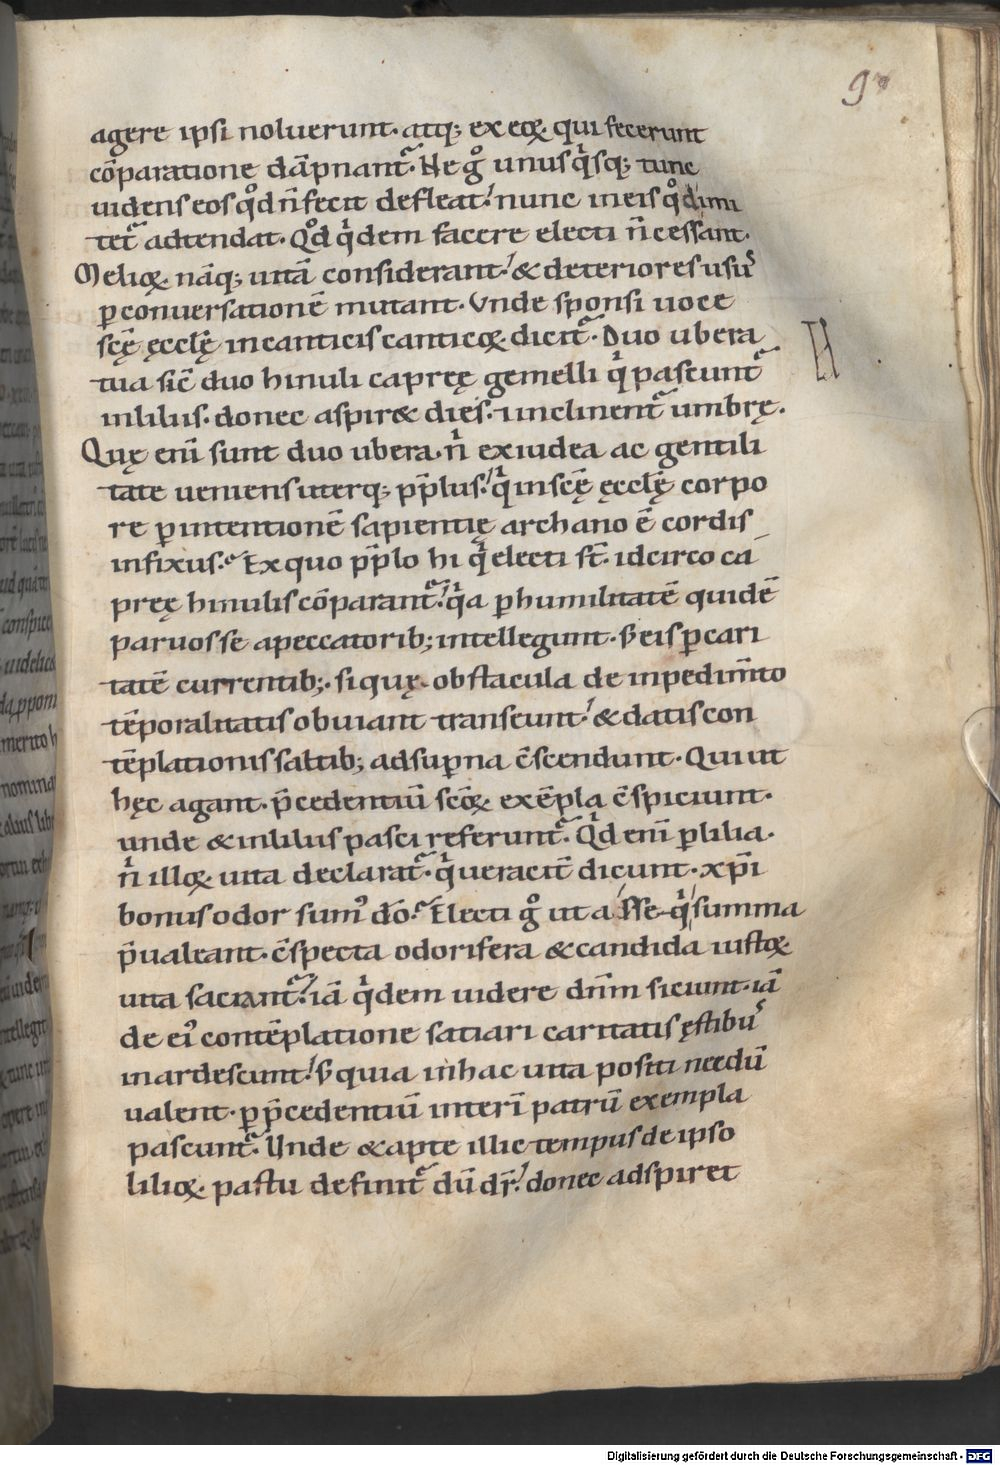 9
agere ipsi noluerunt. atq; ex eoꝝ qui fecerunt
cōparatione dāpnant᷑. Ne gͦ unusqͥsq; tunc
uidens eos qͦd n̄ fecit defleat! nunc in eis qͦd imi
tet᷑ adtendat. Qͦd qͥdem facere electi n̄ cessant.
Melioꝝ nāq; uitā considerant! & deteriores usus
ꝑ conuersationē mutant. Vnde sponsi uoce
scę̄ ęcclę̄ in canticis canticoꝝ dicit᷑. Duo ubera
tua sic̄ duo hinuli capreę gemelli qͥ pascunt᷑
in liliis. donec aspir& dies. & inclinent᷑ umbrę.
Quę enī sunt duo ubera. nͥ ex iudea ac gentili
tate ueniens uterq; pp̄lus! qͥ in scę̄ ęcclę̄ corpo
re ꝑ intentionē sapientię archano ē cordis
infixus. Ex quo pp̄lo hi qͥ electi st̄. idcirco ca
preę hinulis cōparant᷑! qͥa ꝑ humilitatē quidē
paruos se a peccatorib; intellegunt. S; eis ꝑ cari
tatē currentib;. si quę obstacula de inpedim̄to
tēporalitatis obuiant transeunt! & datis con
tēplationis saltib; ad suꝑna c̄scendunt. Qui ut
hęc agant. p̄cedentiū scōꝝ exēpla c̄spiciunt.
unde & in liliis pasci referunt᷑. Qͥd enī ꝑ lilia.
nͥ illoꝝ uita declarat᷑. qͥ ueracit̄ dicunt. xp̄i
bonus odor sum᷒ dō. Electi gͦ ut asseqͥ summa
p̄ualeant. c̄specta odorifera & candida iustoꝝ
uita saciant᷑! iā qͥdem uidere dn̄m siciunt. iā
de ei᷒ contēplatione satiari caritatis ęstibus
inardescunt! S; quia in hac uita positi necdū
ualent. ꝑ p̄cedentiū interī patrū exempla
pascunt᷑. Unde & apte illic tempus de ipso
lilioꝝ pastu definit᷑ dū dr̄! donec adspiret
Digitalisierung gefördert durch die Deutsche Forschungsgemeinschaft - DFG